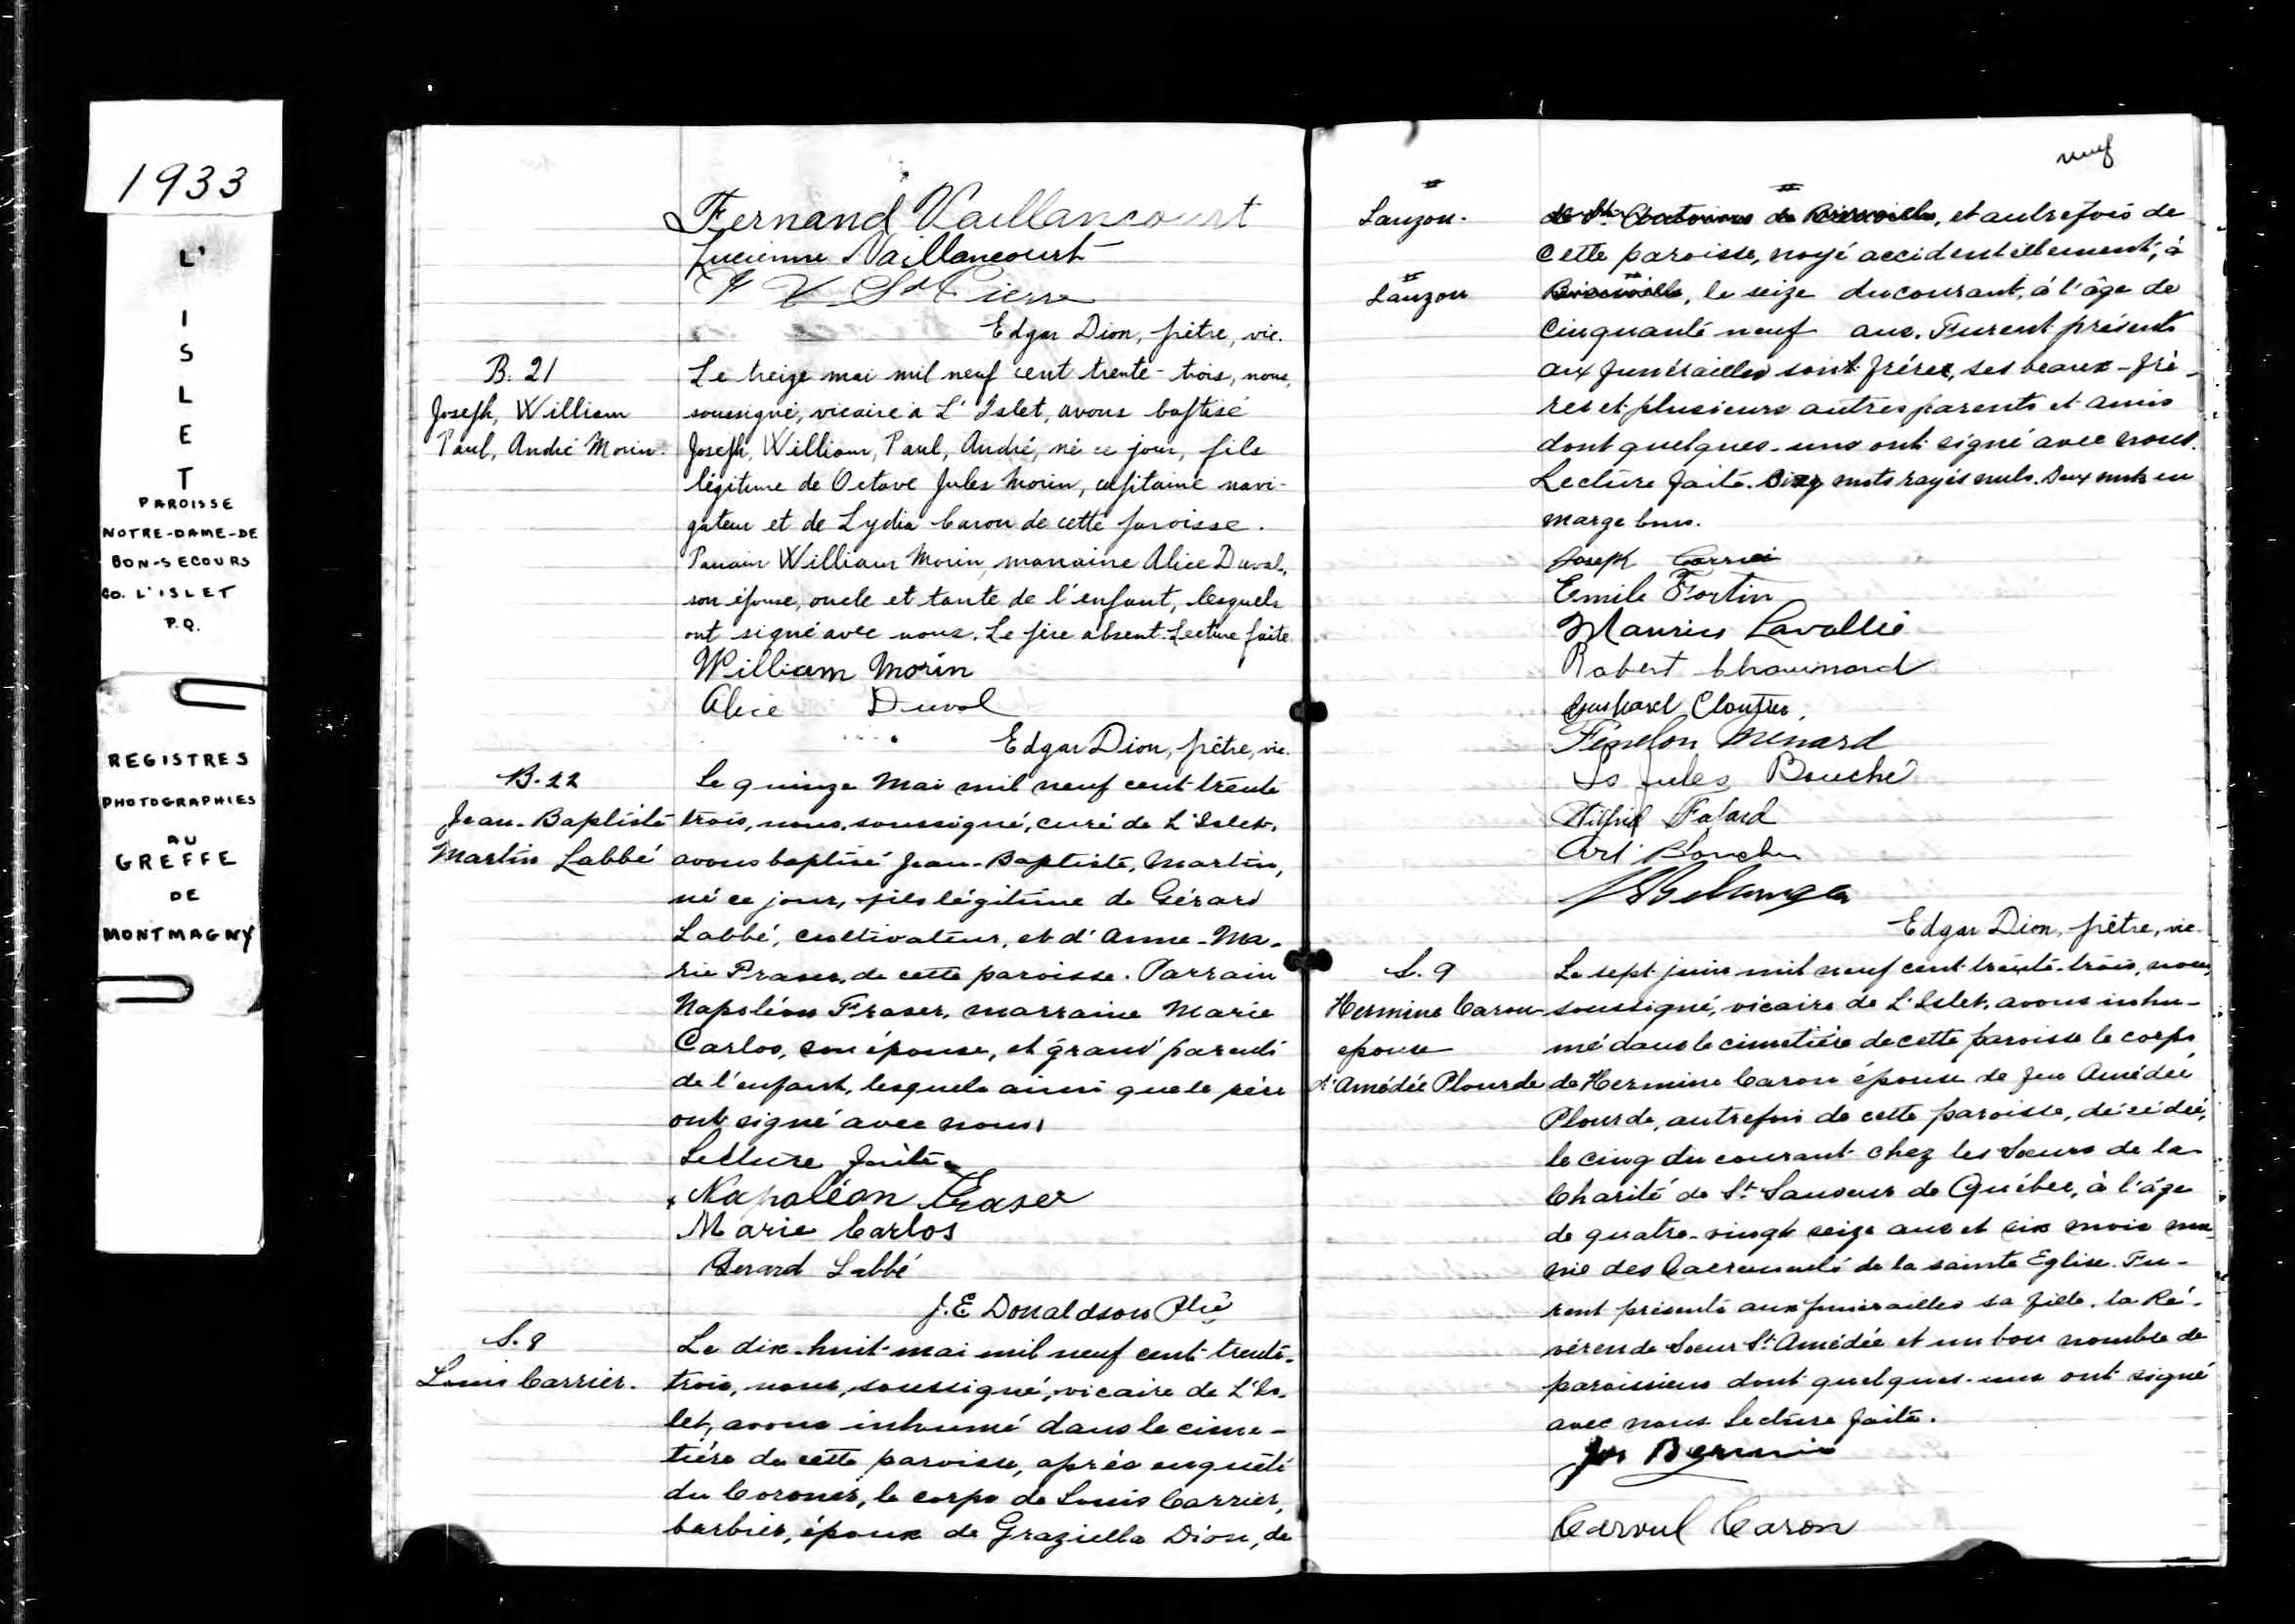 1933
L'
I
S
L
E
T
PAROISSE
NOTRE-DAME-DE
BON-SECOURS
CO. L'ISLET
P.Q.
REGISTRES
PHOTOGRAPHIES
AU
GREFFE
DE
MONTMAGNY
Fernand Vaillancourt
Lucienne Vaillancourt
St Pierre
Edgar Dion, prêtre, vic.
B. 21
Joseph, William
Paul, André Morin.
Le treize mai mil neuf cent trente-trois, nous,
soussigné, vicaire à L'Islet, avons baptisé
Joseph, William, Paul, André, né ce jour, fils
légitime de Octave Jules Morin, capitaine navi-
gateur et de Lydia Caron de cette paroisse.
Parrain William Morin, marraine Alice Duval,
son épouse, oncle et tante de l'enfant, lesquels
ont signé avec nous. Le père absent. Lecture faite
William Morin
Alice Duval
Edgar Dion, prêtre, vic.
B. 22
Jean-Baptiste
Martin Labbé
Le quinze Mai mil neuf cent trente
trois, nous, soussigné, curé de L'Islet,
avons baptisé Jean-Baptiste, Martin,
né ce jour, fils légitime de Gérard
Labbé, cultivateur, et d'Anne-Ma-
rie Fraser, de cette paroisse. Parrain
Napoléon Fraser, marraine Marie
Carlos, son épouse, et grand'parents
de l'enfant, lesquels ainsi que le père
ont signé avec nous,
Lecture faite.
Napoléon Fraser
Marie Carlos
Gerard Labbé
J.E Donaldson Ptre
S. 8
Louis Carrier.
Le dix-huit mai mil neuf cent trente-
trois, nous, soussigné, vicaire de L'Is-
let, avons inhumé dans le cime-
tière de cette paroisse, après enquête
du Coroner, le corps de Louis Carrier,
barbier, époux de Graziella Dion, de
neuf
Lauzon.
Lauzon
de Bienville, et autrefois de
cette paroisse, noyé accidentellement, à
Bienville, le seize du courant, à l'âge de
cinquante neuf ans. Furent présents
aux funérailles sont frères, ses beaux-frè-
res et plusieurs autres parents et amis
dont quelques-uns ont signé avec nous.
Lecture faite. mots rayés nuls. Deux mots en
marge bons.
Joseph Carrier
Emile Fortin
Maurice Lavallée
Robert Chouinard
Cloutier,
Fénelon Ménard
Ls Jules Bouché
Wilfrid Fafard
Art. Boucher
Edgar Dion, prêtre, vic.
S. 9
Hermine Caron
epouse
d'Amédée Plourde
Le sept juin mil neuf cent trente-trois, nous,
soussigné, vicaire de L'Islet, avons inhu-
mé dans le cimetière de cette paroisse le corps
de Hermine Caron épouse de feu Amédée
Plourde, autrefois de cette paroisse, décédée,
le cinq du courant chez les Sœurs de la
Charité de St Sauveur de Québec, à l'âge
de quatre-vingt seize ans et six mois mu
nie des Sacrements de la sainte Eglise. Fu-
rent présents aux funérailles sa fille, la Ré-
vérende Sœur St Amédée et un bon nombre de
paroissiens dont quelques-uns ont signé
avec nous Lecture faite.
Jos Bernier
Caron